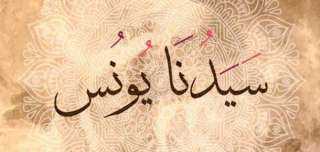 سَيَدُنَا يُونُس